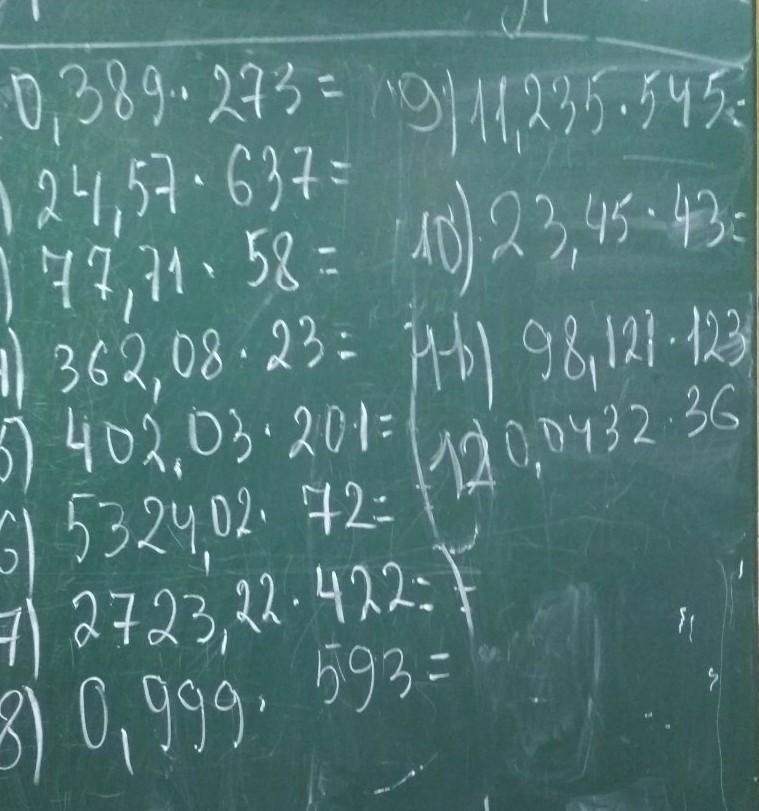 0,389 · 273 =
) 24,57 · 637 =
) 77,71 · 58 =
4) 362,08 · 23 =
5) 402,03 · 201 =
6) 5324,02 · 72 =
7) 2723,22 · 422 =
8) 0,999 · 593 =
9) 11,235 · 545 =
10) 23,45 · 43 =
11) 98,121 · 123
12 0,0432 · 36